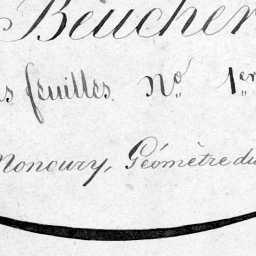 Beucher
es feuilles. No. 1er
Moncury, Géomètre du